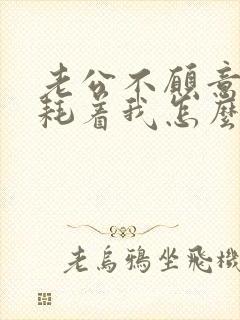 老公不願意
耗着我怎麼
老烏鴉坐飛機